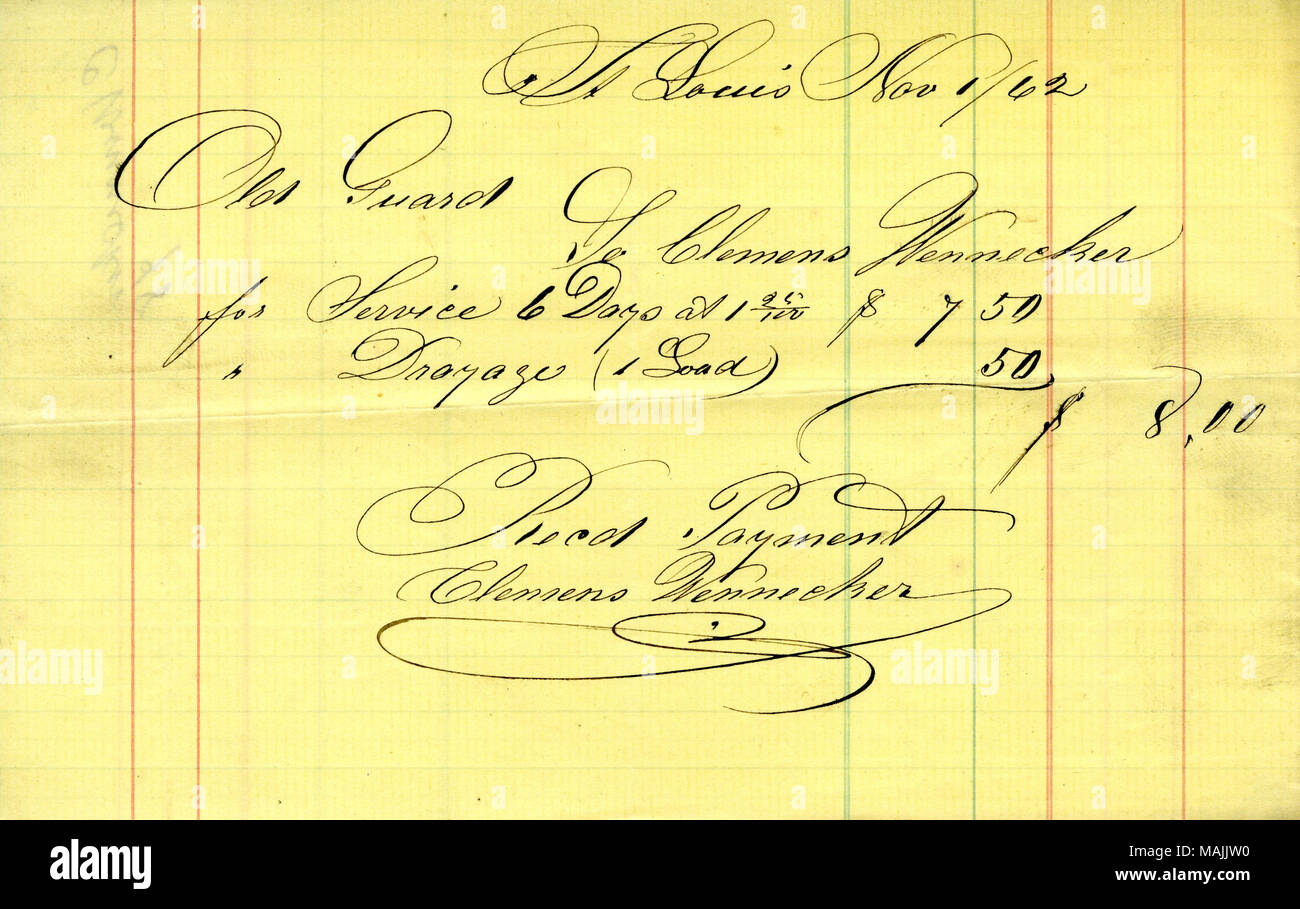 St Louis Nov 1/62
Old Guard
To Clemens Wennecker
for Service 6 Days at 1 25/100 $ 7 50
" Drayage (1 Load) 50
$ 8,00
Recd Payment
Clemens Wennecker
alamy
alamy
alamy
alamy
alamy
alamy
alamy
Image ID: MAJJW0
www.alamy.com